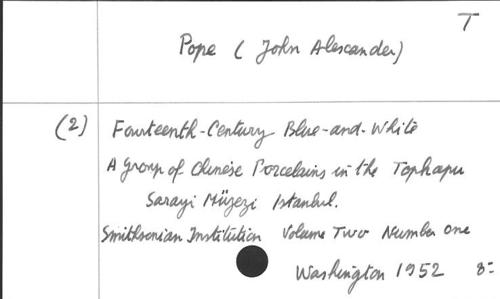 T
Pope ( John Alexander)
(2) Fourteenth-Century Blue-and-White
A group of Chinese Porcelains in the Topkapu
Sarayi Müzezi Istanbul.
Smithsonian Institution Volume Two Number one
Washington 1952 8=